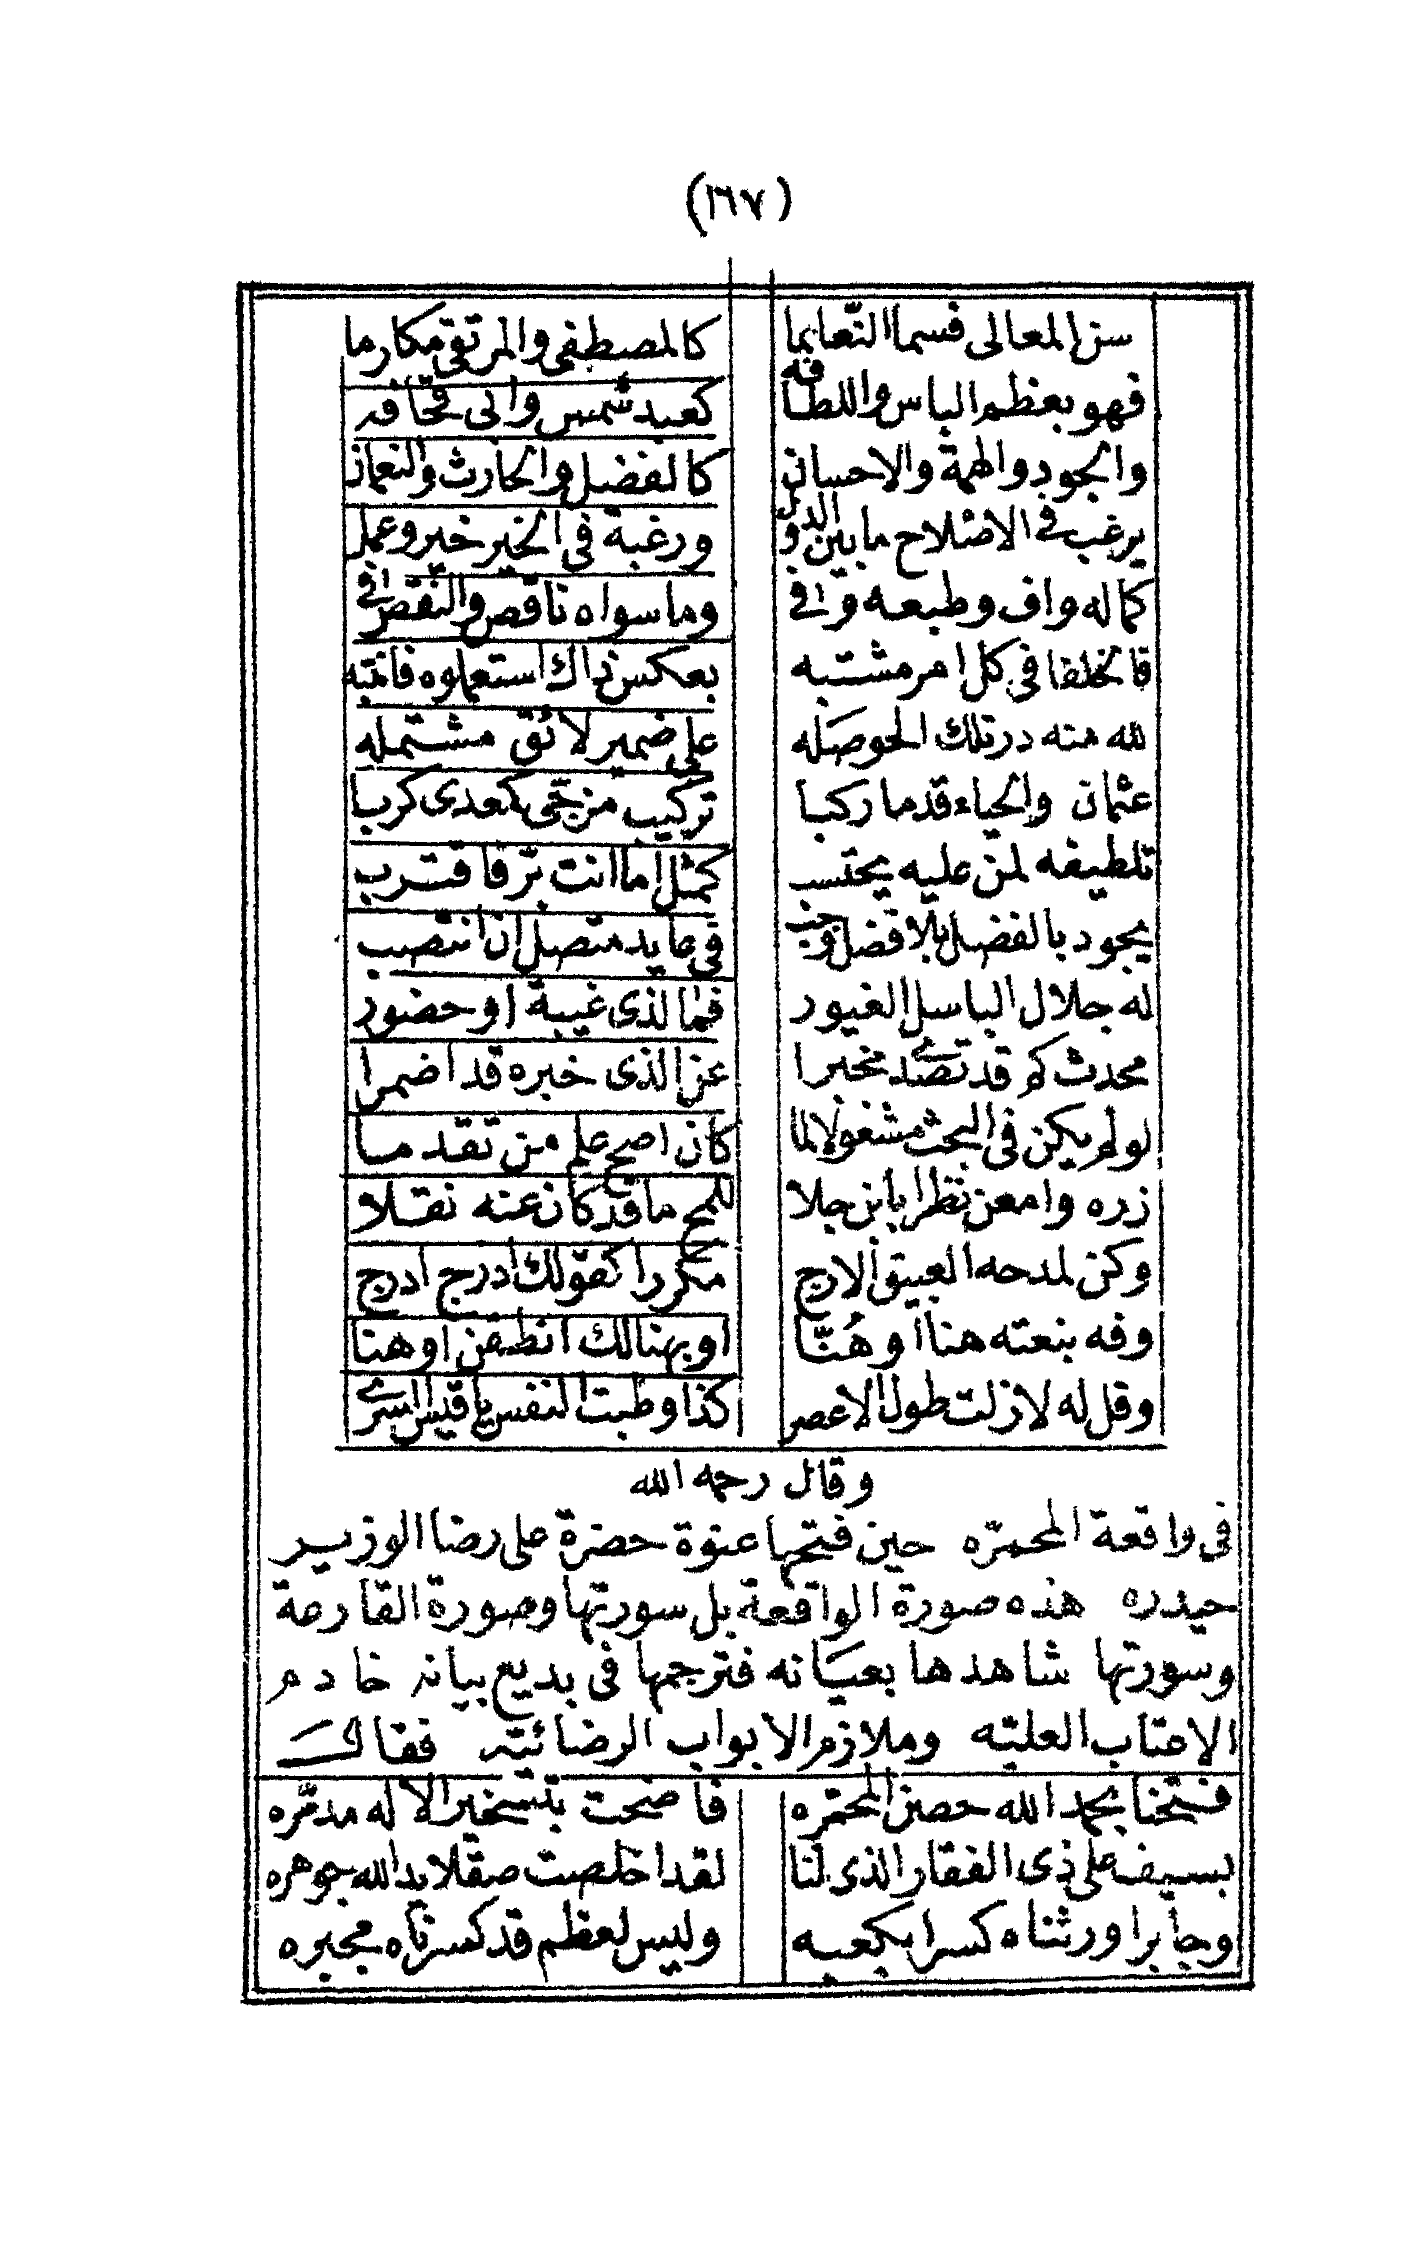 (١٦٧)
سن المعالى فسما النّعايما كالمصطفى والمرتقى مكارما
فهو بعظم الباس واللطافه كعبد شمس وابى قحافه
والجود والهمة والاحسان كالفضل والحارث والنعمان
يرغب فى الاصلاح ما بين الدول ورغبة فى الخير خير وعمل
كماله واف وطبعه وافى وما سواه ناقص والنقص فى
فا تخلفا فى كل امر مشتبه بعكس ذاك استعملوه فانتبه
لله منه در تلك الحوصله على ضمير لائق مشتمله
عثمان والحياء قد ما ركبا تركيب مزجى كعدى كربا
تلطيفه لمن عليه يحتسب كمثل اما انت برّ فاقترب
يجود بالفضل بلا فضل وجب فى ما يد متصل ان انتصب
له جلال الباسل الغيور فما لذى غيبة او حضور
محدث كم قد تصدى مخبرا عن الذى خبره قد اضمرا
لو لم يكن فى البحث مشغولا لما كان اصح علم من تقدما
زره وامعن نظرا يا ابن جلا للمح ما قد كان عنه نقلا
وكن لمدحه العبيق الارج مكررا كقولك ادرج ادرج
وفه بنعته هنا او هُنّا او بهنالك انطقن او هنا
وقل له لازلت طول الاعصر كذا وطبت النفس يا قيس السرى
وقال رحمه الله
فى واقعة المحمرّه حين فتحها عنوة حضرة على رضا الوزير
حيدره هذه صورة الواقعة بل سورتها وصورة القارعة
وسورتها شاهدها بعيانه فترجمها فى بديع بيانه خادم
الاعتاب العليّه وملازم الابواب الرضائيّه فقال
فتحنا بحمد الله حصن المحمّره فاضحت بتسخير الاله مدمّره
بسيف على ذى الفقار الذى لنا لقد اخلصت صقلا يد الله جوهره
وجابرا ورثناه كسرا بكعبه وليس لعظم قد كسرناه مجبره